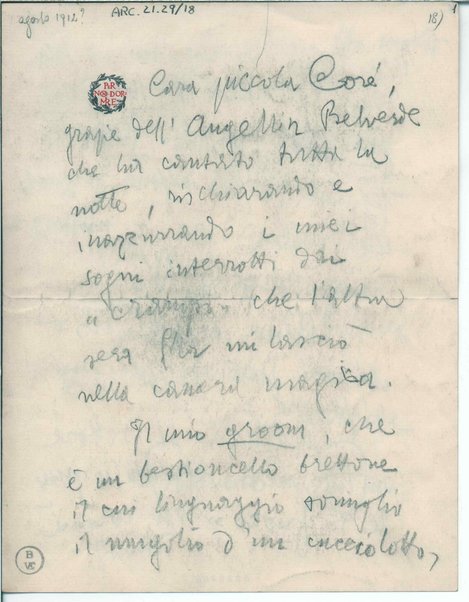 agosto 1912?
ARC. 21.29/18
18)
1
Cara piccola Coré,
grazie dell' Angellin Belverde
che ha cantato tutta la
notte, rischiarando e
inazzurrando i miei
sogni interrotti dai
"crampi" che l'altra
sera mi lasciò
nella camera magica.
Il mio groom, che
è un bestioncello brettone
il cui linguaggio somiglia
il mugolio d'un cucciolotto,
B
VE